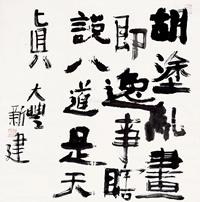 胡塗亂畫
即逸事瞎
說八道是天
眞 大豐
新建